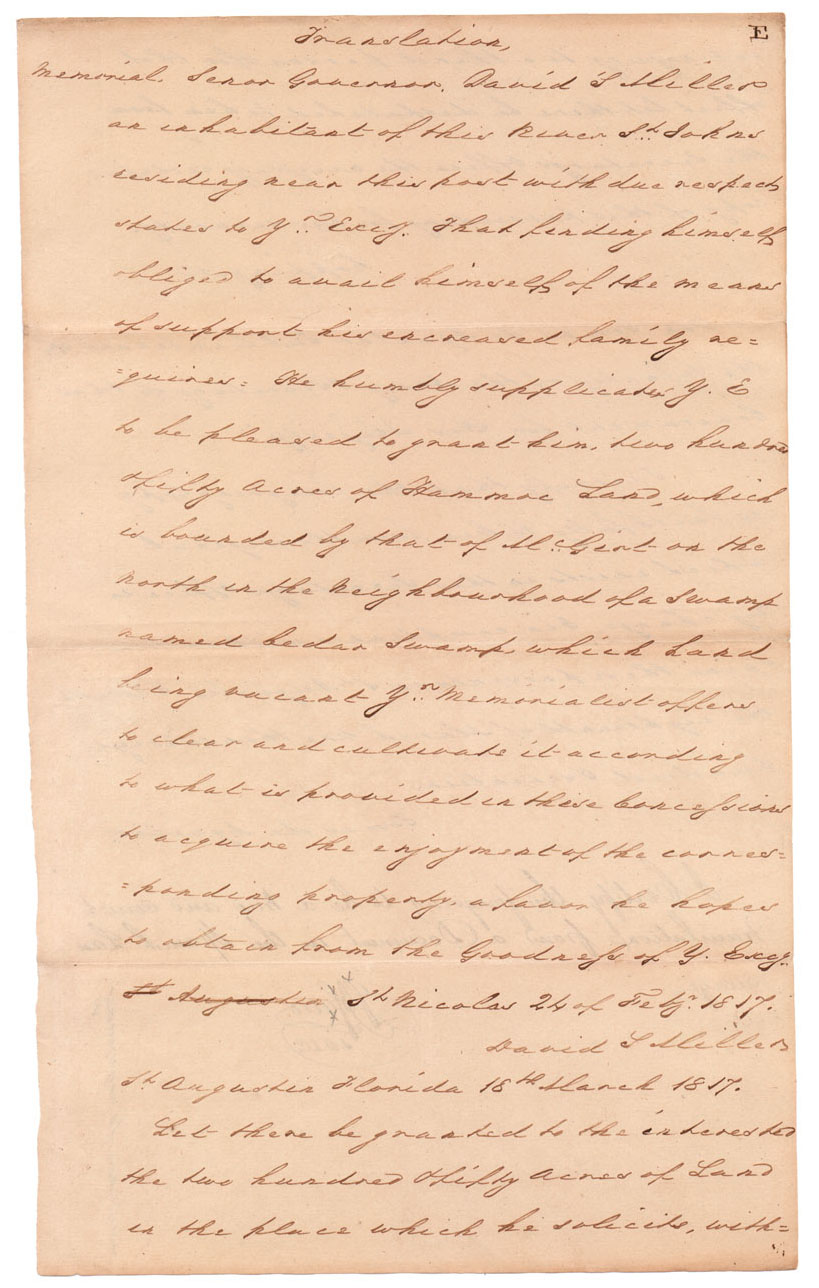 E
Translation,
Memorial. Senor Governor. David S Miller
an inhabitant of this River St. Johns
residing near this post with due respect
states to Yr. Excy. That finding himself
obliged to avail himself of the means
of support his encreased family re=
=quires= He humbly supplicates Y. E
to be pleased to grant him, two hundred
& fifty Acres of Hammoc Land, which
is bounded by that of Mc. Girt on the
North in the Neighbourhood of a Swamp
named Cedar Swamp, which Land
being vacant Yr. Memorialist offers
to clear and cultivate it according
to what is provided in these Concessions
to acquire the enjoyment of the corres=
=ponding property. a favor he hopes
to obtain from the Goodness of Y. Excy.
St Augustin St Nicolas 24 of Feby. 1817.
David S Miller
St Augustin Florida 18th March 1817.
Let there be granted to the interested
the two hundred & fifty Acres of Land
in the place which he solicits, with=